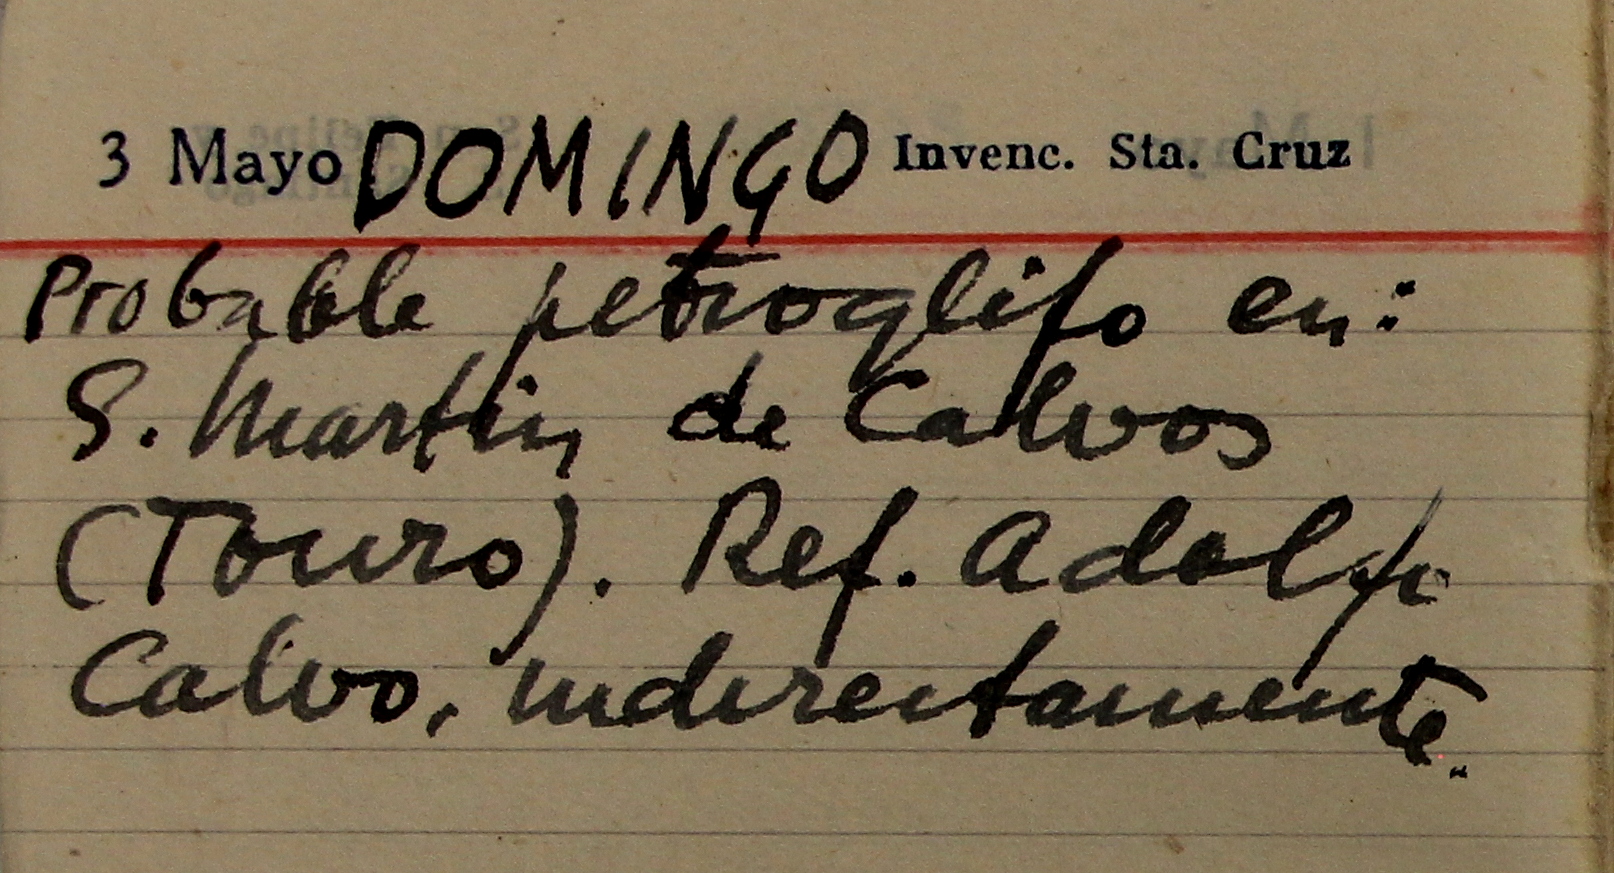 3 Mayo DOMINGO Invenc. Sta. Cruz
Probable petroglifo en:
S. Martin de Calvos
(Touro). Ref. Adolfo
Calvo, indirectamente.